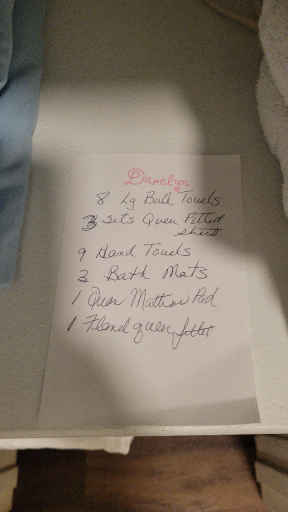 Danelys
8 Lg Bath Towels
3 Sets Queen Fitted
Sheet
9 Hand Towels
2 Bath Mats
1 Queen Mattress Pad
1 queen